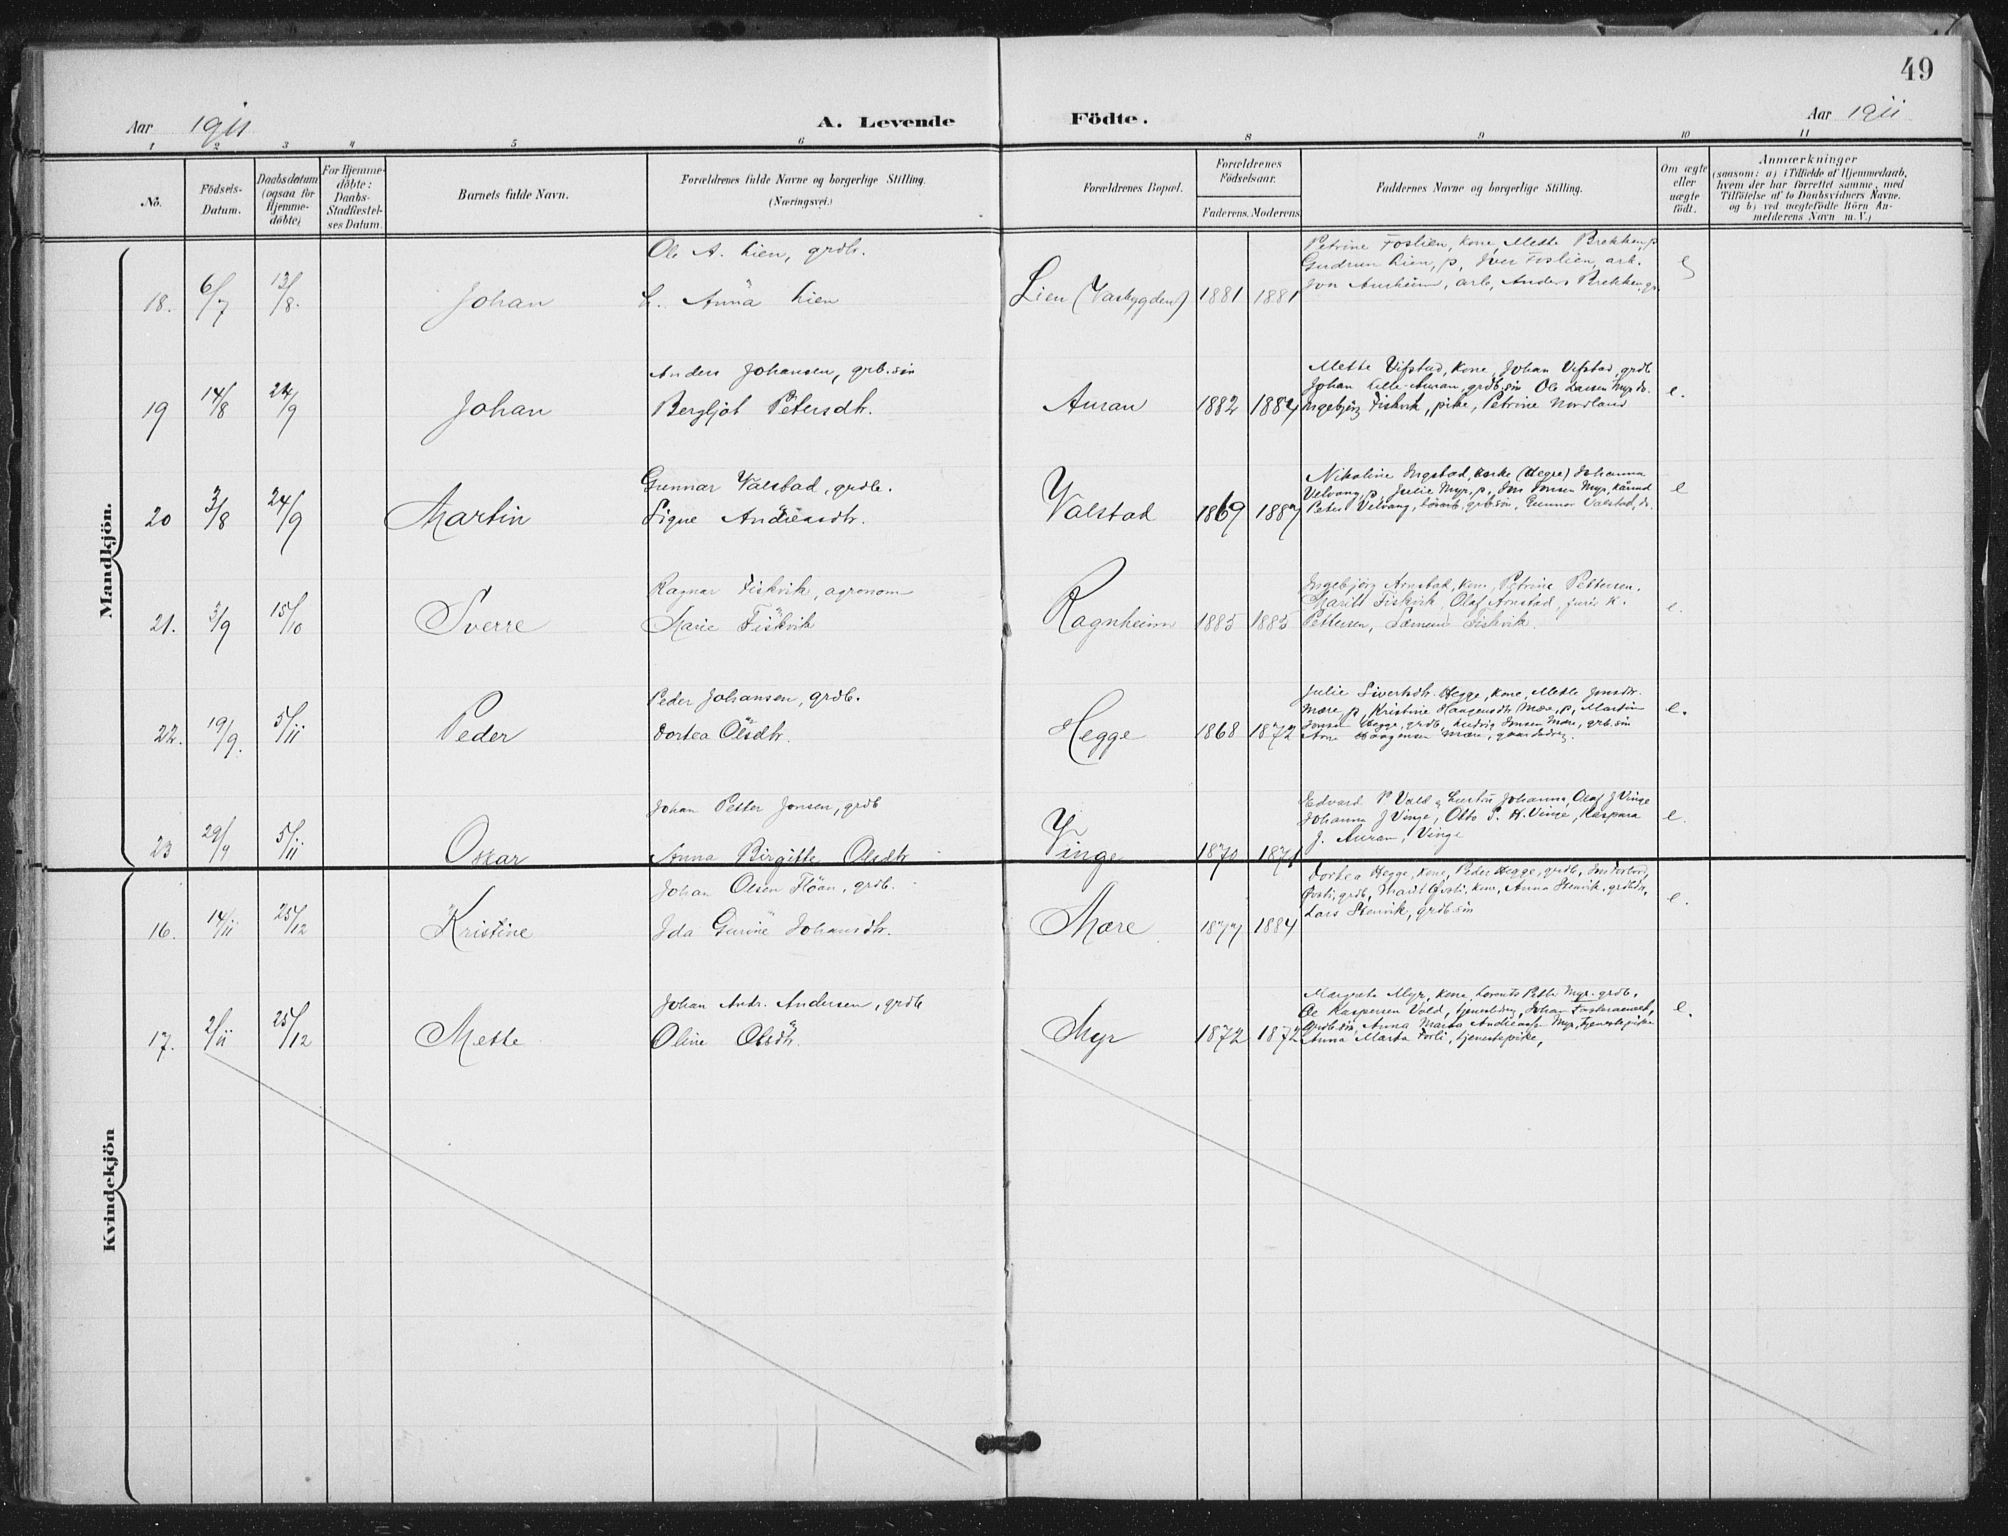 49
Aar 1911 A. Levende Födte. Aar 1911
1 2 3 4 5 6 8 9 10 11
No.
Födsels-Datum.
Daabsdatum (ogsaa for Hjemme-döbte).
For Hjemme-döbte: Daabs-Stadfæstel-ses Datum.
Barnets fulde Navn.
Forældrenes fulde Navne og borgerlige Stilling.
(Næringsvei.)
Forældrenes Bopæl.
Forældrenes Födselsaar.
Faderens. Moderens
Faddernes Navne og borgerlige Stilling.
Om ægte eller uægte födt.
Anmærkninger
(saasom: a) i Tilfælde af Hjemmedaab,
hvem der har forrettet samme, med
Tilföielse af to Daabsvidners Navne.
og b) ved uægtefödte Börn An-
melderens Navn m. V.)
Mandkjön.
Ole A. Lien, grdbr.
18. 6/7 13/8. Johan h. Anna Lien Lien 1881 1881
Petrine Fostien, kone, Mette Brekken, p
Gudrun Lien, p, Iver Fostien, arb.
Jon Aunheim, arb, Anders Brekken, e
Anders Johansen, grb. sön
19 14/8 24/9 Johan Bergljot Petersdtr. Auran 1882 1884
Mette Vifstad, kone, Johan Vifstad, grdb
Johan Lille-Auran, grdb. sön Ole Larsen Myr do.
Ingebjörg Fiskvik, pike, Petrine Nordland e.
Gunnar Valstad, grdbr.
20 3/8 24/9 Martin Signe Andreasdtr. Valstad 1869 1887
Nikoline Ingstad, kirke (Hegre) Johanna
Velvang, p, Julie Myr, p, Jon Jensen Myr, kårmd
Peter Velvang, grb. sön, Gunnar Valstad, do. e
Ragnar Fiskvik, agronom
21. 3/9 15/10 Sverre Marie Fiskvik Ragnheim 1885 1885
Ingebjörg Arnstad, kone, Petrine Pettersen,
Marit Fiskvik, Olaf Arnstad, K.
Pettersen, Fiskvik. e.
Peder Johansen, grdb.
22. 19/9. 5/11 Peder Dortea Olsdtr. Hegge 1868 1872
Julie Sivertsdtr. Hegge, kone, Mette Jonsdtr.
Mære, p, Kristine Haagensdtr Mære, p, Martin
Jensen Hegge, grdb, Ludvig Jensen Mære, grb. sön
Arne Haagensen Mære, gaardsdreng. e.
Johan Petter Jonsen, grdb
23 29/9 5/11 Oskar Anna Birgitte Olsdtr Vinge 1870 1871
Edvard P Vold, Johanna, Olaf J Vinge
Johanna J Vinge, Otto P. H. Vinge, Kaspara
J. Auran, Vinge e.
Kvindekjön
Johan Olsen Flöan, grdb.
16. 14/11 25/12 Kristine Ida Gurine Johansdtr. Mære 1877 1884
Dortea Hegge, kone, Peder Hegge, grdb,
grdb, Marit kone, Anna Stenvik, grdbdtr,
Lars Stenvik, grdb. sön e.
Johan Andr. Andersen, grdb
17. 2/11 25/12 Mette Oline Olsdtr. Myr 1872 1872
Margrete Myr, kone, Lorents Petter Myr. grdb,
Ole Kaspersen Vold, tjenestedreng, Johan
grdb. sön, Anna Marta Andreasen Myr, tjenestepike
Anna Marta Forli, tjenestepike, e.